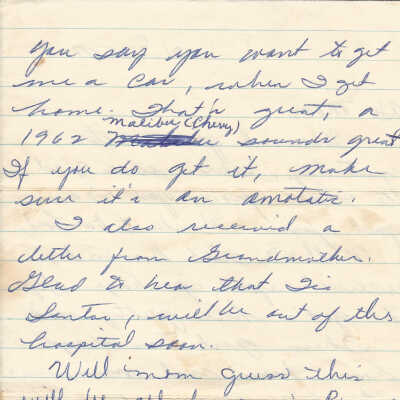 you say you want to get
me a car, when I get
home. That's great, a
malibu (Chevy)
1962 sounds great
If you do get it, make
sure it's an amotatic.
I also received a
letter from Grandmother.
Glad to hear that Tio
Santos, will be out of the
hospital soon.
Well mom guess this
will be